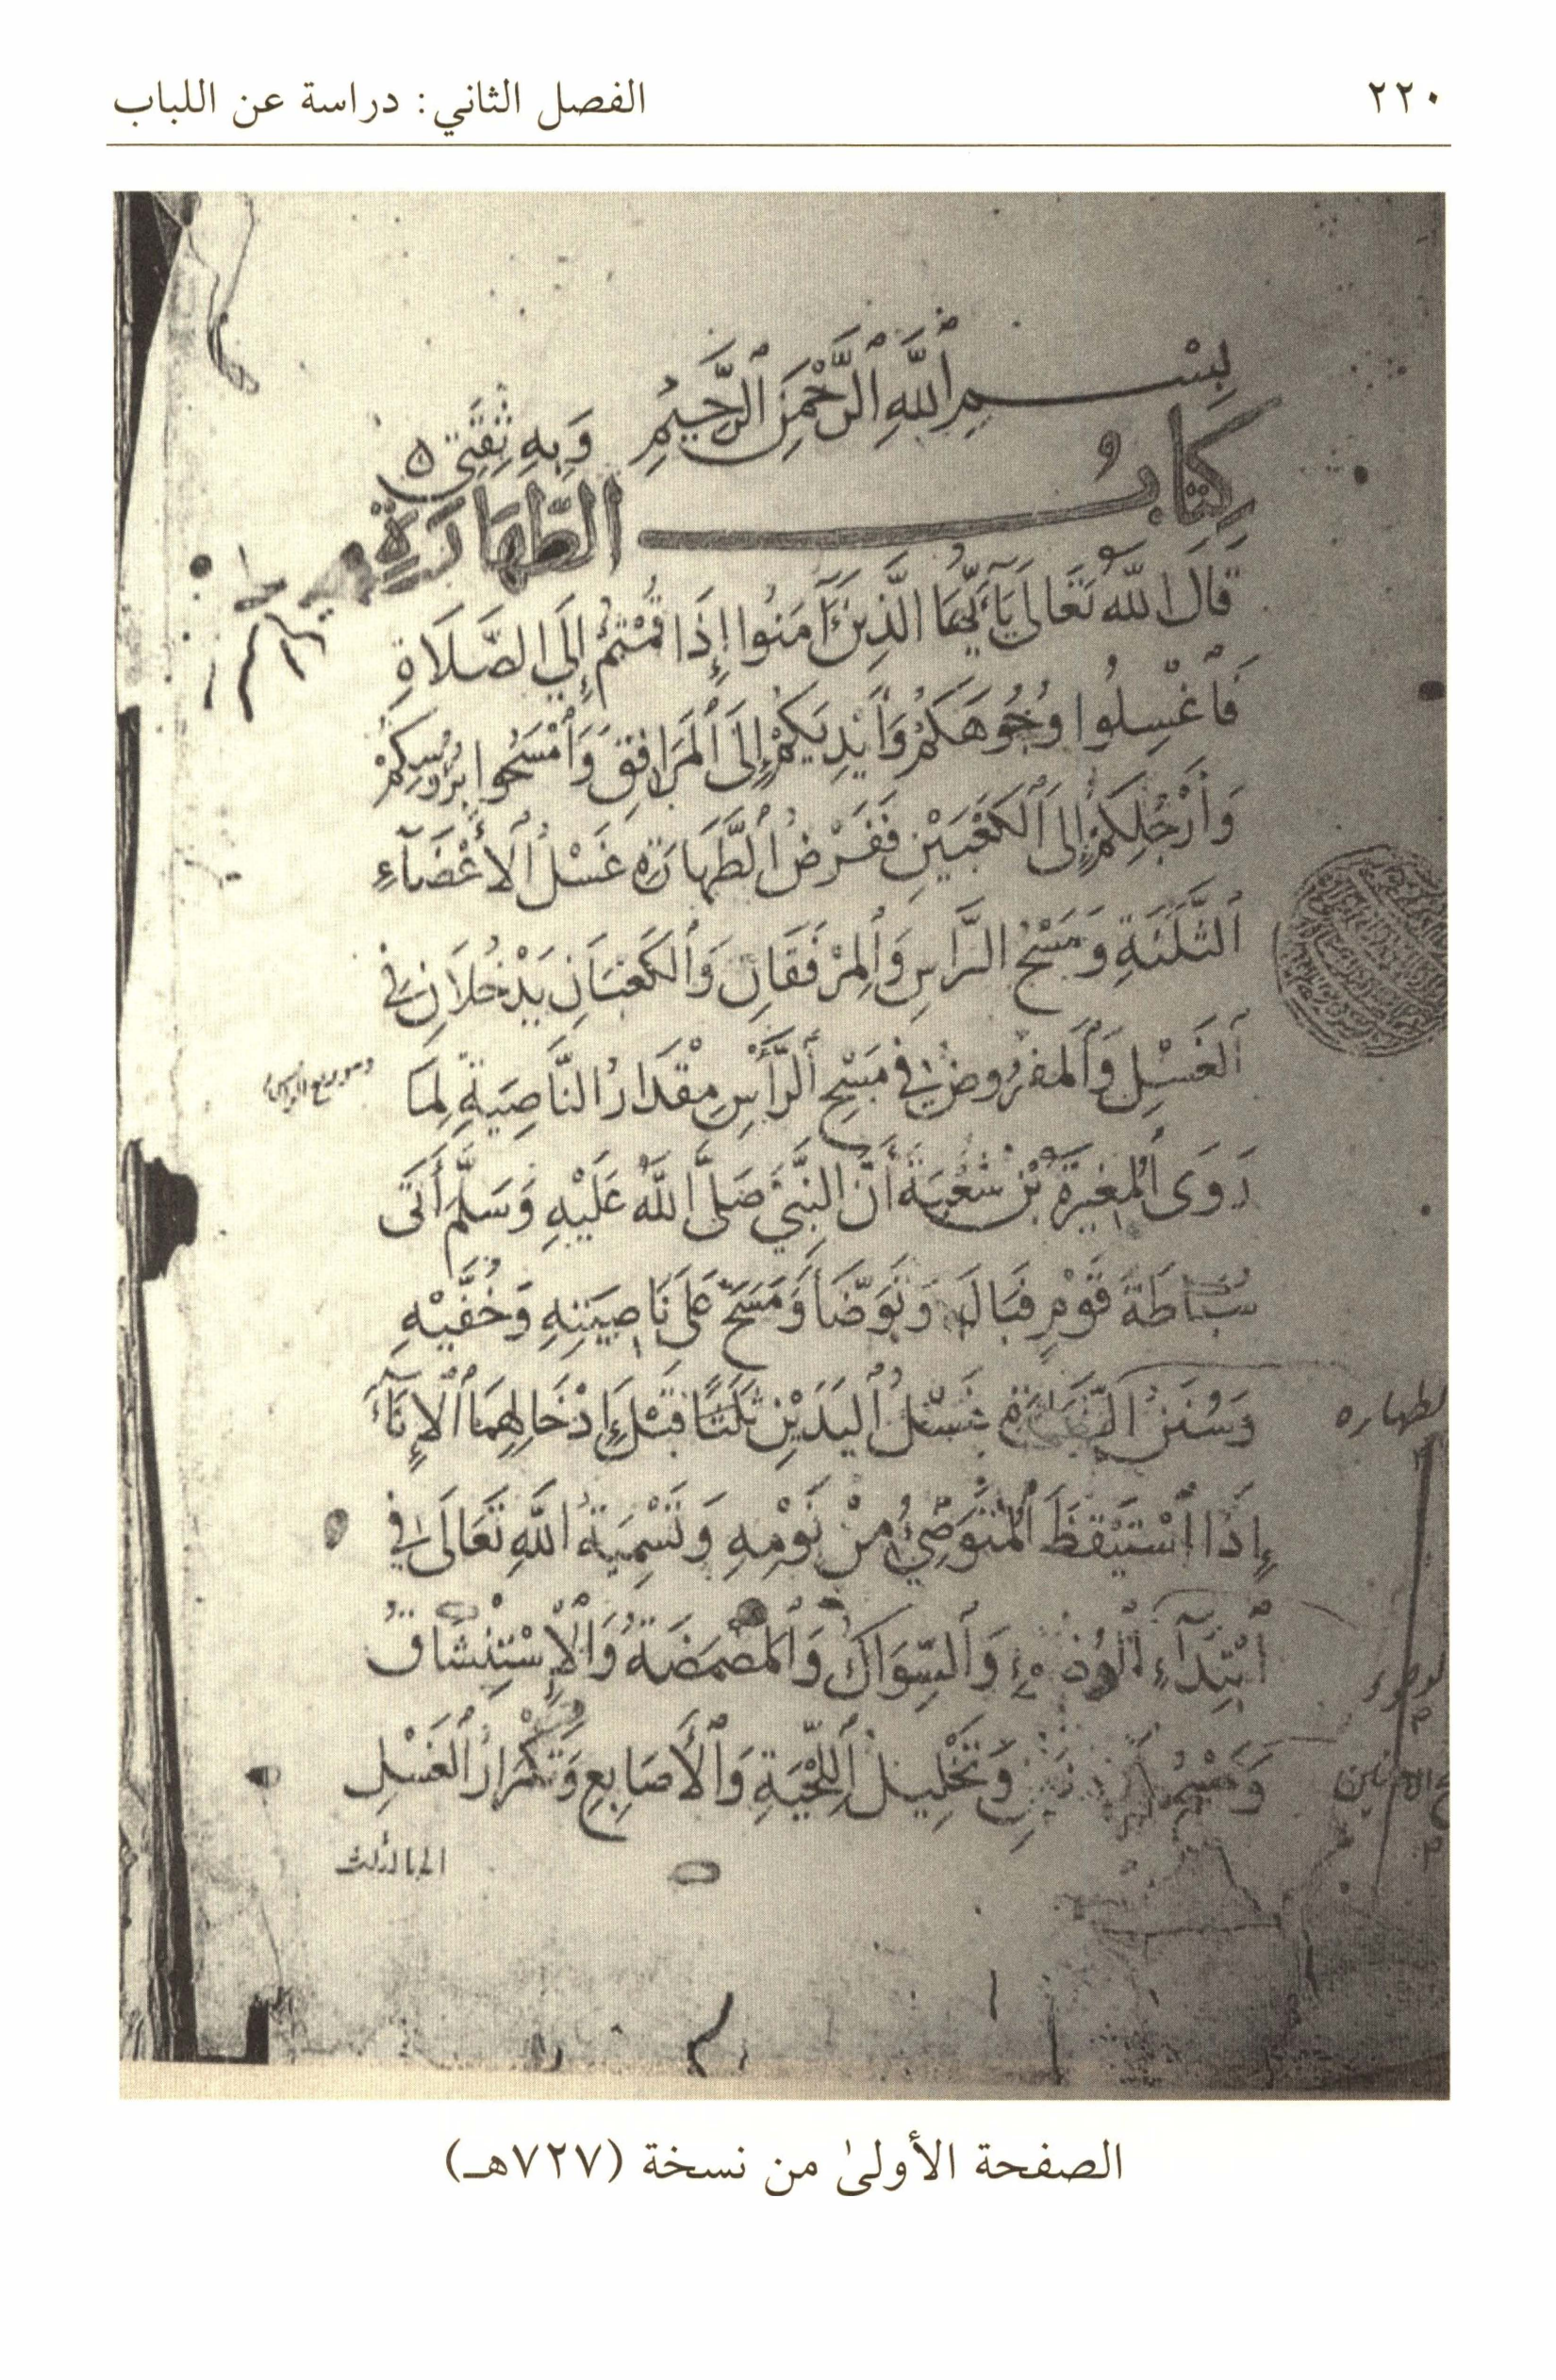 ٢٢٠
الفصل الثاني: دراسة عن اللباب
بِسْمِ ٱللَّهِ ٱلرَّحْمَنِ ٱلرَّحِيمِ وَبِهِ ثِقَتِي
كِتَابُ الطَّهَارَةِ
قَالَ اللَّهُ تَعَالَى يَا أَيُّهَا الَّذِينَ آمَنُوا إِذَا قُمْتُمْ إِلَى الصَّلَاةِ
فَٱغْسِلُوا وُجُوهَكُمْ وَأَيْدِيَكُمْ إِلَى ٱلْمَرَافِقِ وَٱمْسَحُوا بِرُءُسِكُمْ
وَأَرْجُلِكُمْ إِلَى ٱلْكَعْبَيْنِ فَفَرْضُ ٱلطَّهَارَةِ غَسْلُ ٱلْأَعْضَآءِ
ٱلثَّلَثَةِ وَمَسْحُ الرَّاسِ وَٱلْمِرْفَقَانِ وَٱلْكَعْبَانِ يَدْخُلَانِ فِي
ٱلْغَسْلِ وَٱلْمَفْرُوضُ فِي مَسْحِ ٱلرَّأْسِ مِقْدَارُ النَّاصِيَةِ لِمَا
وهو ربع الراس
رَوَى ٱلْمُغِيرَةُ بْنُ شُعْبَةَ أَنَّ النَّبِيَّ صَلَّى اللَّهُ عَلَيْهِ وَسَلَّمَ أَتَى
سُبَاطَةَ قَوْمٍ فَبَالَ وَتَوَضَّأَ وَمَسَحَ عَلَى نَاصِيَتِهِ وَخُفَّيْهِ
وَسُنَنُ الطَّهَارَةِ غَسْلُ ٱلْيَدَيْنِ ثَلَثًا قَبْلَ إِدْخَالِهِمَا ٱلْإِنَآءَ
لطهاره
إِذَا ٱسْتَيْقَظَ ٱلْمُتَوَضِّيُ مِنْ نَوْمِهِ وَتَسْمِيَةُ اللَّهِ تَعَالَى فِي
ٱبْتِدَآءِ ٱلْوُضُوءِ وَٱلسِّوَاكُ وَٱلْمَضْمَضَةُ وَٱلْإِسْتِنْشَاقُ
لوضوء
وَمَسْحُ ٱلْأُذُنَيْنِ وَتَخْلِيلُ ٱللِّحْيَةِ وَٱلْأَصَابِعِ وَتَكْرَارُ ٱلْغَسْلِ
ح الاذنين
الى الثلث
الصفحة الأولىٰ من نسخة (٧٢٧هـ)